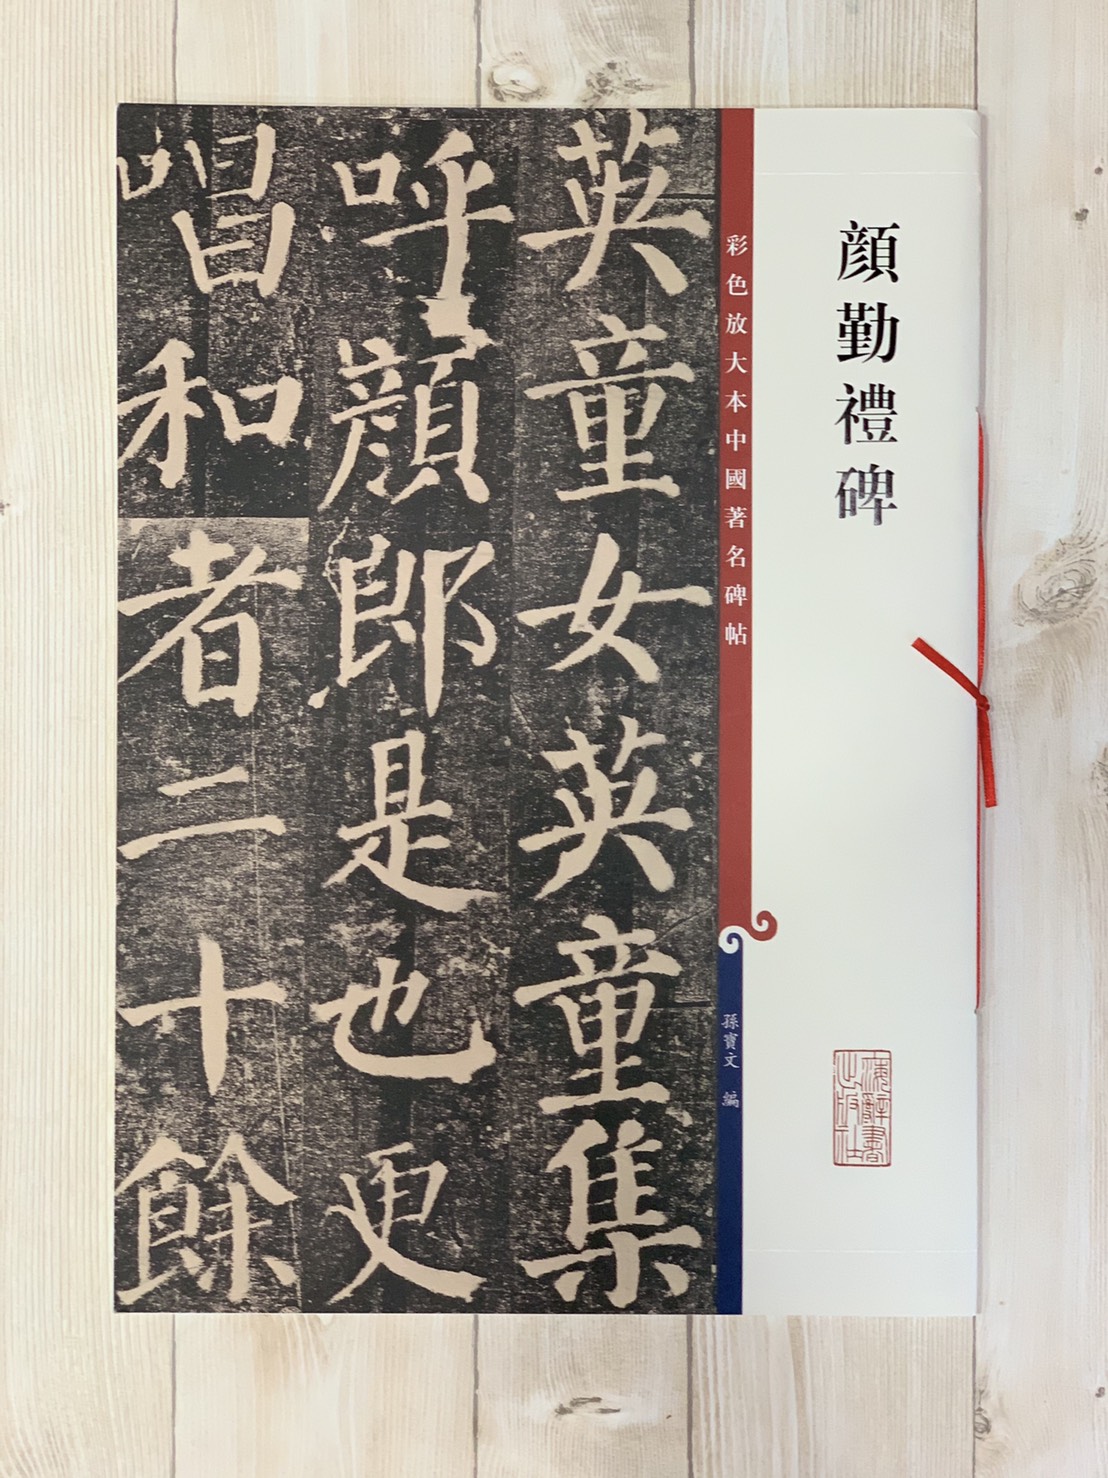 顔勤禮碑
彩色放大本中國著名碑帖
孫寶文 編
海辭書
出版社
英童女英童集
呼顔郎是也更
唱和者二十餘